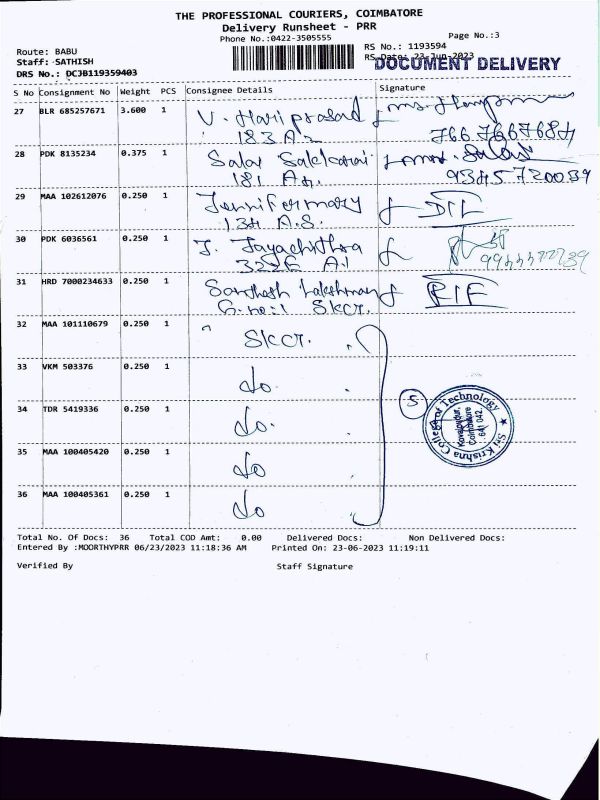 THE PROFESSIONAL COURIERS, COIMBATORE
Delivery Runsheet - PRR
Phone No.:0422-3505555
Page No.:3
Route: BABU
RS No.: 1193594
Staff: SATHISH
RS Date: 23-Jun-2023
DOCUMENT DELIVERY
DRS No.: DCJB119359403
S No Consignment No Weight PCS Consignee Details Signature
27 BLR 685257671 3.600 1 V. Hari prasad
183 A2
28 PDK 8135234 0.375 1
181
29 MAA 102612076 0.250 1 Jennifermary
134 A.S.
30 PDK 6036561 0.250 1 J. Jayachithra
322E A1
31 HRD 7000234633 0.250 1 Santhosh Lakshman
SKCT.
32 MAA 101110679 0.250 1 SKCT.
33 VKM 503376 0.250 1 do
34 TDR 5419336 0.250 1 do.
5
Sri Krishna College of Technology
Kovaipudur,
Coimbatore
641 042
35 MAA 100405420 0.250 1 do
36 MAA 100405361 0.250 1 do
Total No. Of Docs: 36 Total COD Amt: 0.00 Delivered Docs: Non Delivered Docs:
Entered By :MOORTHYPRR 06/23/2023 11:18:36 AM Printed On: 23-06-2023 11:19:11
Verified By Staff Signature